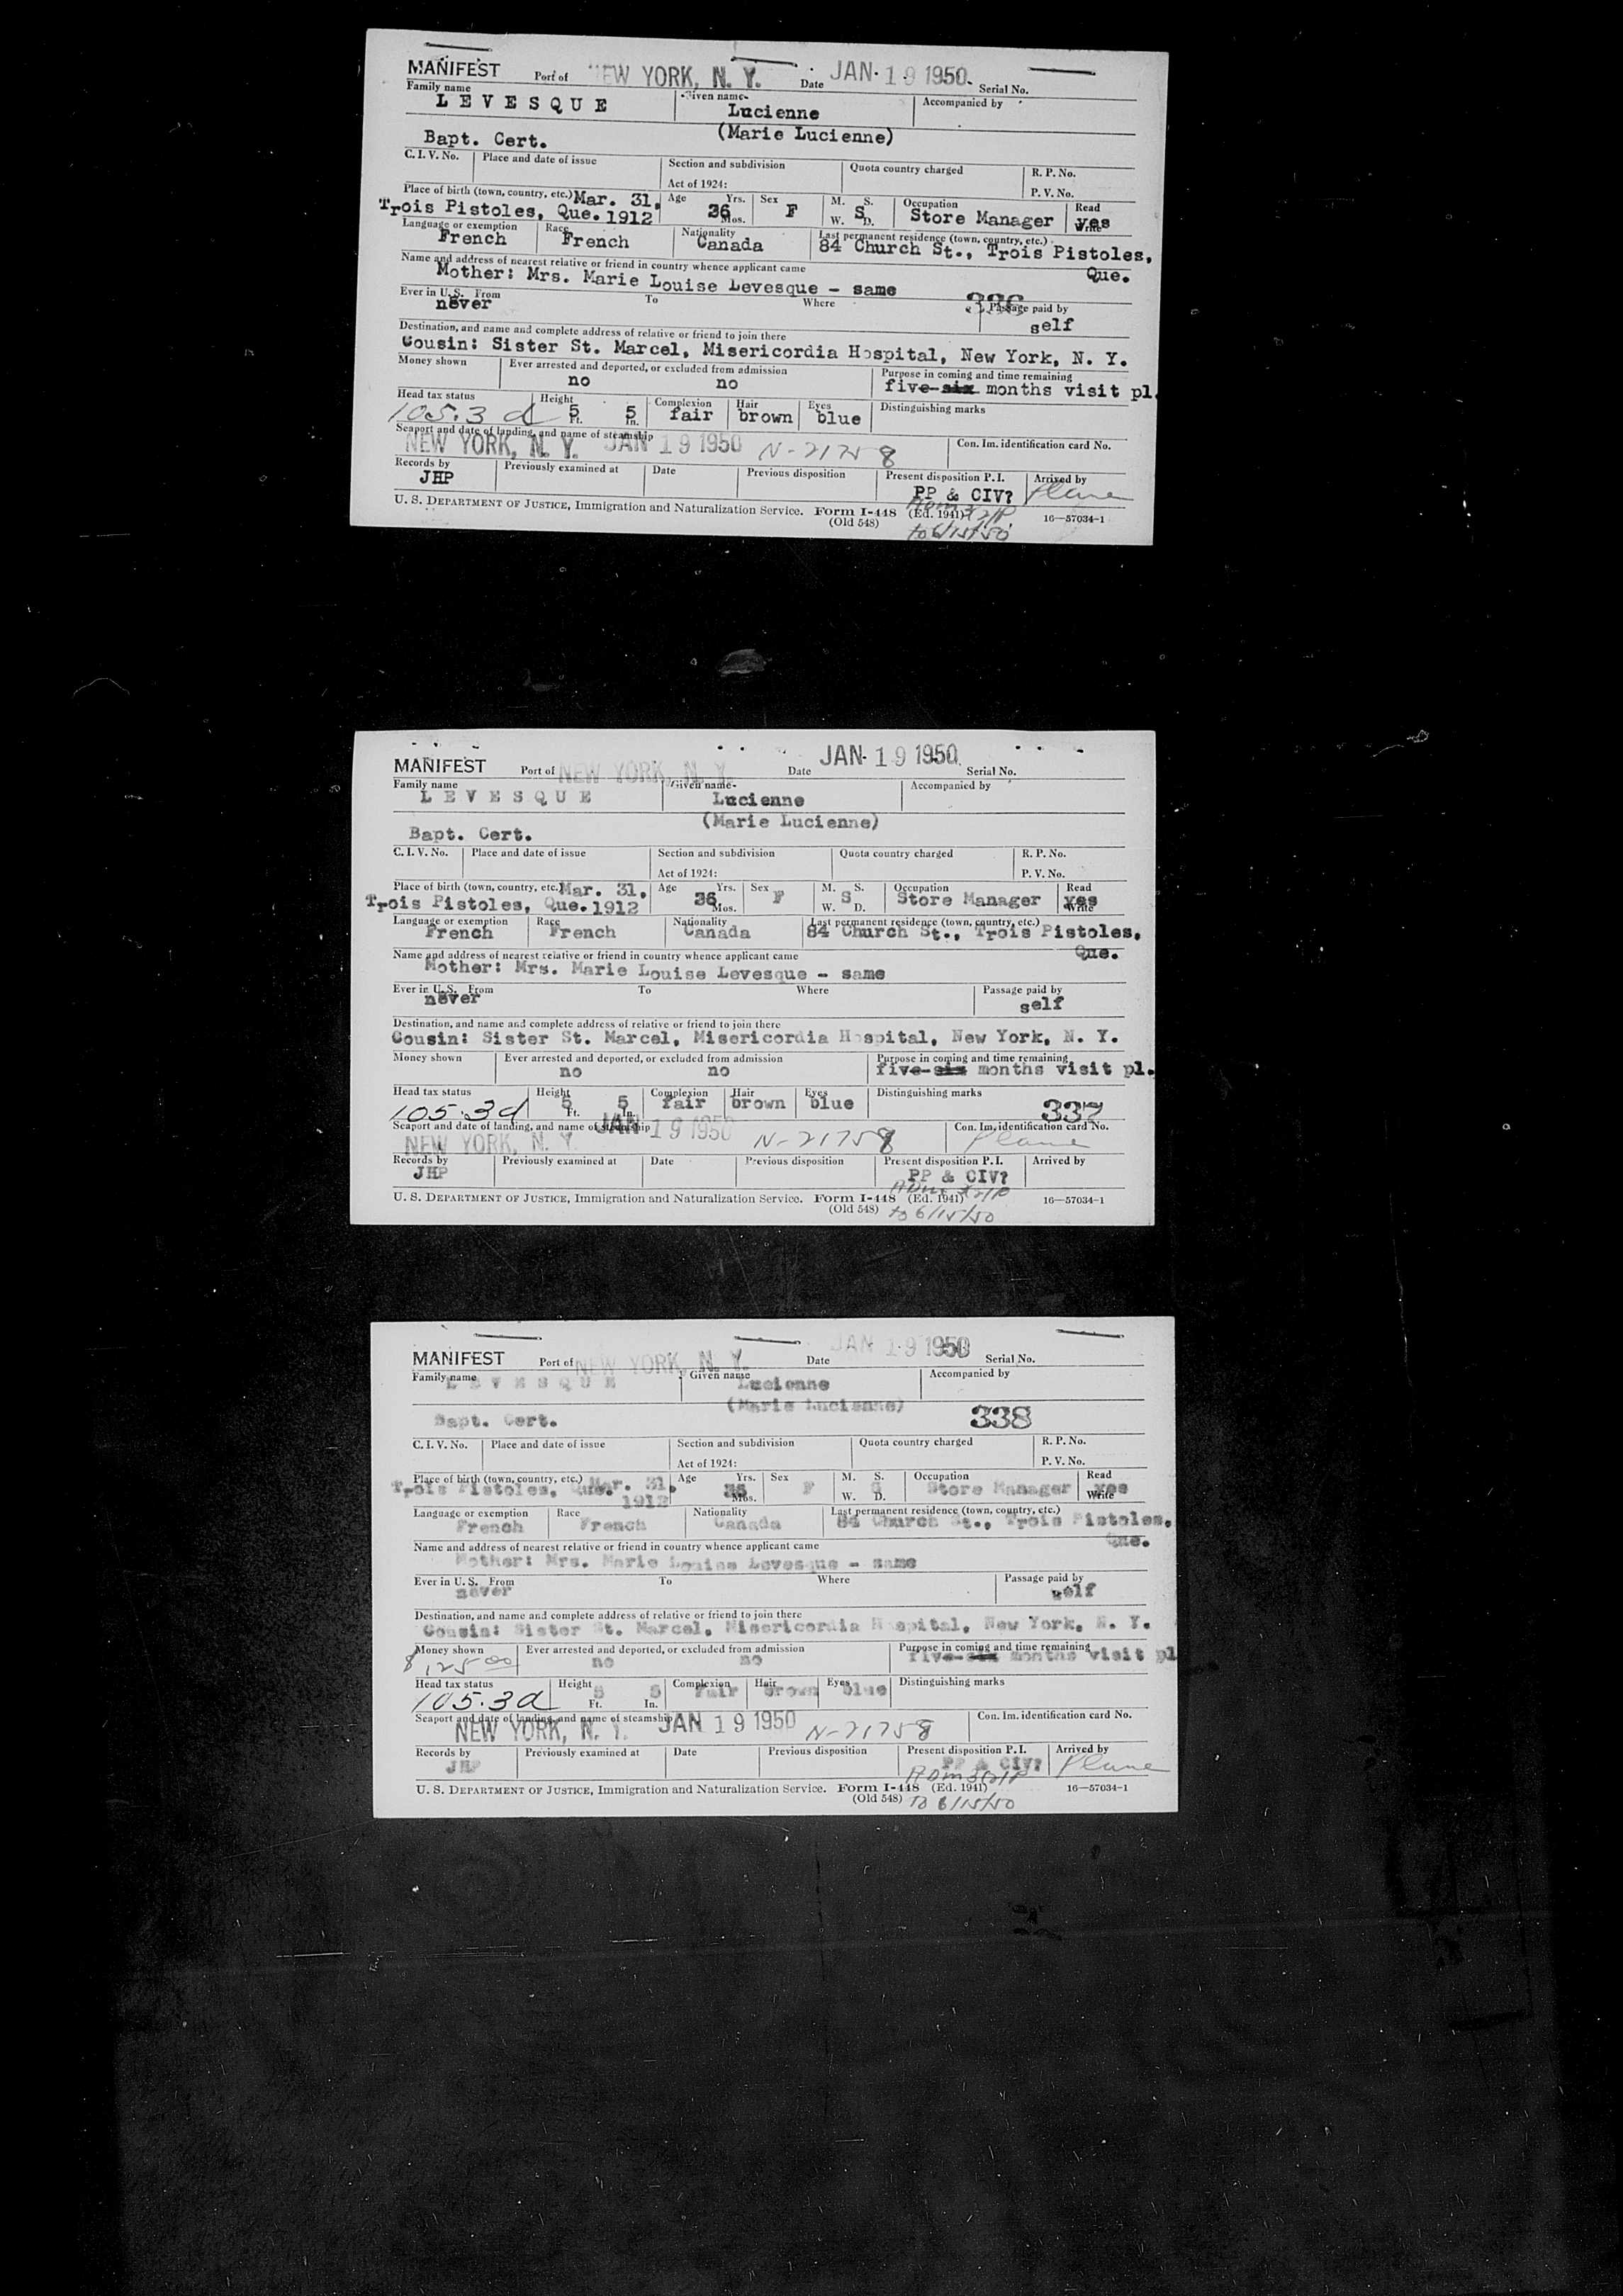 MANIFEST Port of NEW YORK, N. Y. Date JAN 19 1950 Serial No.
Family name Given name Accompanied by
LEVESQUE Lucienne
(Marie Lucienne)
Bapt. Cert.
C. I. V. No. Place and date of issue Section and subdivision Quota country charged R. P. No.
Act of 1924: P. V. No.
Place of birth (town, country, etc.) Mar. 31, Age Yrs. Sex M. S. Occupation Read
Trois Pistoles, Que. 1912 36 Mos. F W. S D. Store Manager yes Write
Language or exemption Race Nationality Last permanent residence (town, country, etc.)
French French Canada 84 Church St., Trois Pistoles,
Name and address of nearest relative or friend in country whence applicant came Que.
Mother: Mrs. Marie Louise Levesque - same
Ever in U. S. From To Where 336 Passage paid by
never self
Destination, and name and complete address of relative or friend to join there
Cousin: Sister St. Marcel, Misericordia Hospital, New York, N. Y.
Money shown Ever arrested and deported, or excluded from admission Purpose in coming and time remaining
no no five-six months visit pl.
Head tax status Height Complexion Hair Eyes Distinguishing marks
105.3 d 5 Ft. 5 In. fair brown blue
Seaport and date of landing, and name of steamship Con. Im. identification card No.
NEW YORK, N. Y. JAN 19 1950 N-21758
Records by Previously examined at Date Previous disposition Present disposition P. I. Arrived by
JHP PP & CIV? Plane
U. S. DEPARTMENT OF JUSTICE, Immigration and Naturalization Service. Form I-448 (Ed. 1941) 16—57034-1
(Old 548) to 6/15/50
MANIFEST Port of NEW YORK, N. Y. Date JAN 19 1950 Serial No.
Family name Given name Accompanied by
LEVESQUE Lucienne
(Marie Lucienne)
Bapt. Cert.
C. I. V. No. Place and date of issue Section and subdivision Quota country charged R. P. No.
Act of 1924: P. V. No.
Place of birth (town, country, etc.) Mar. 31, Age Yrs. Sex M. S. Occupation Read
Trois Pistoles, Que. 1912 36 Mos. F W. S D. Store Manager yes Write
Language or exemption Race Nationality Last permanent residence (town, country, etc.)
French French Canada 84 Church St., Trois Pistoles,
Name and address of nearest relative or friend in country whence applicant came Que.
Mother: Mrs. Marie Louise Levesque - same
Ever in U. S. From To Where Passage paid by
never self
Destination, and name and complete address of relative or friend to join there
Cousin: Sister St. Marcel, Misericordia Hospital, New York, N. Y.
Money shown Ever arrested and deported, or excluded from admission Purpose in coming and time remaining
no no five-six months visit pl.
Head tax status Height Complexion Hair Eyes Distinguishing marks
105.3d 5 Ft. 5 In. fair brown blue 337
Seaport and date of landing, and name of steamship Con. Im. identification card No.
NEW YORK, N. Y. JAN 19 1950 N-21758 Plane
Records by Previously examined at Date Previous disposition Present disposition P. I. Arrived by
JHP PP & CIV?
U. S. DEPARTMENT OF JUSTICE, Immigration and Naturalization Service. Form I-448 (Ed. 1941) 16—57034-1
(Old 548) to 6/15/50
MANIFEST Port of NEW YORK, N. Y. Date JAN 19 1950 Serial No.
Family name Given name Accompanied by
LEVESQUE Lucienne
(Marie Lucienne) 338
Bapt. Cert.
C. I. V. No. Place and date of issue Section and subdivision Quota country charged R. P. No.
Act of 1924: P. V. No.
Place of birth (town, country, etc.) Mar. 31, Age Yrs. Sex M. S. Occupation Read
Trois Pistoles, Que. 1912 36 Mos. F W. S D. Store Manager yes Write
Language or exemption Race Nationality Last permanent residence (town, country, etc.)
French French Canada 84 Church St., Trois Pistoles,
Name and address of nearest relative or friend in country whence applicant came Que.
Mother: Mrs. Marie Louise Levesque - same
Ever in U. S. From To Where Passage paid by
never self
Destination, and name and complete address of relative or friend to join there
Cousin: Sister St. Marcel, Misericordia Hospital, New York, N. Y.
Money shown Ever arrested and deported, or excluded from admission Purpose in coming and time remaining
$125.00 no no five-six months visit pl
Head tax status Height Complexion Hair Eyes Distinguishing marks
105.3d 5 Ft. 5 In. fair brown blue
Seaport and date of landing, and name of steamship Con. Im. identification card No.
NEW YORK, N. Y. JAN 19 1950 N-21758
Records by Previously examined at Date Previous disposition Present disposition P. I. Arrived by
JHP PP & CIV? Plane
U. S. DEPARTMENT OF JUSTICE, Immigration and Naturalization Service. Form I-448 (Ed. 1941) 16—57034-1
(Old 548) To 6/15/50